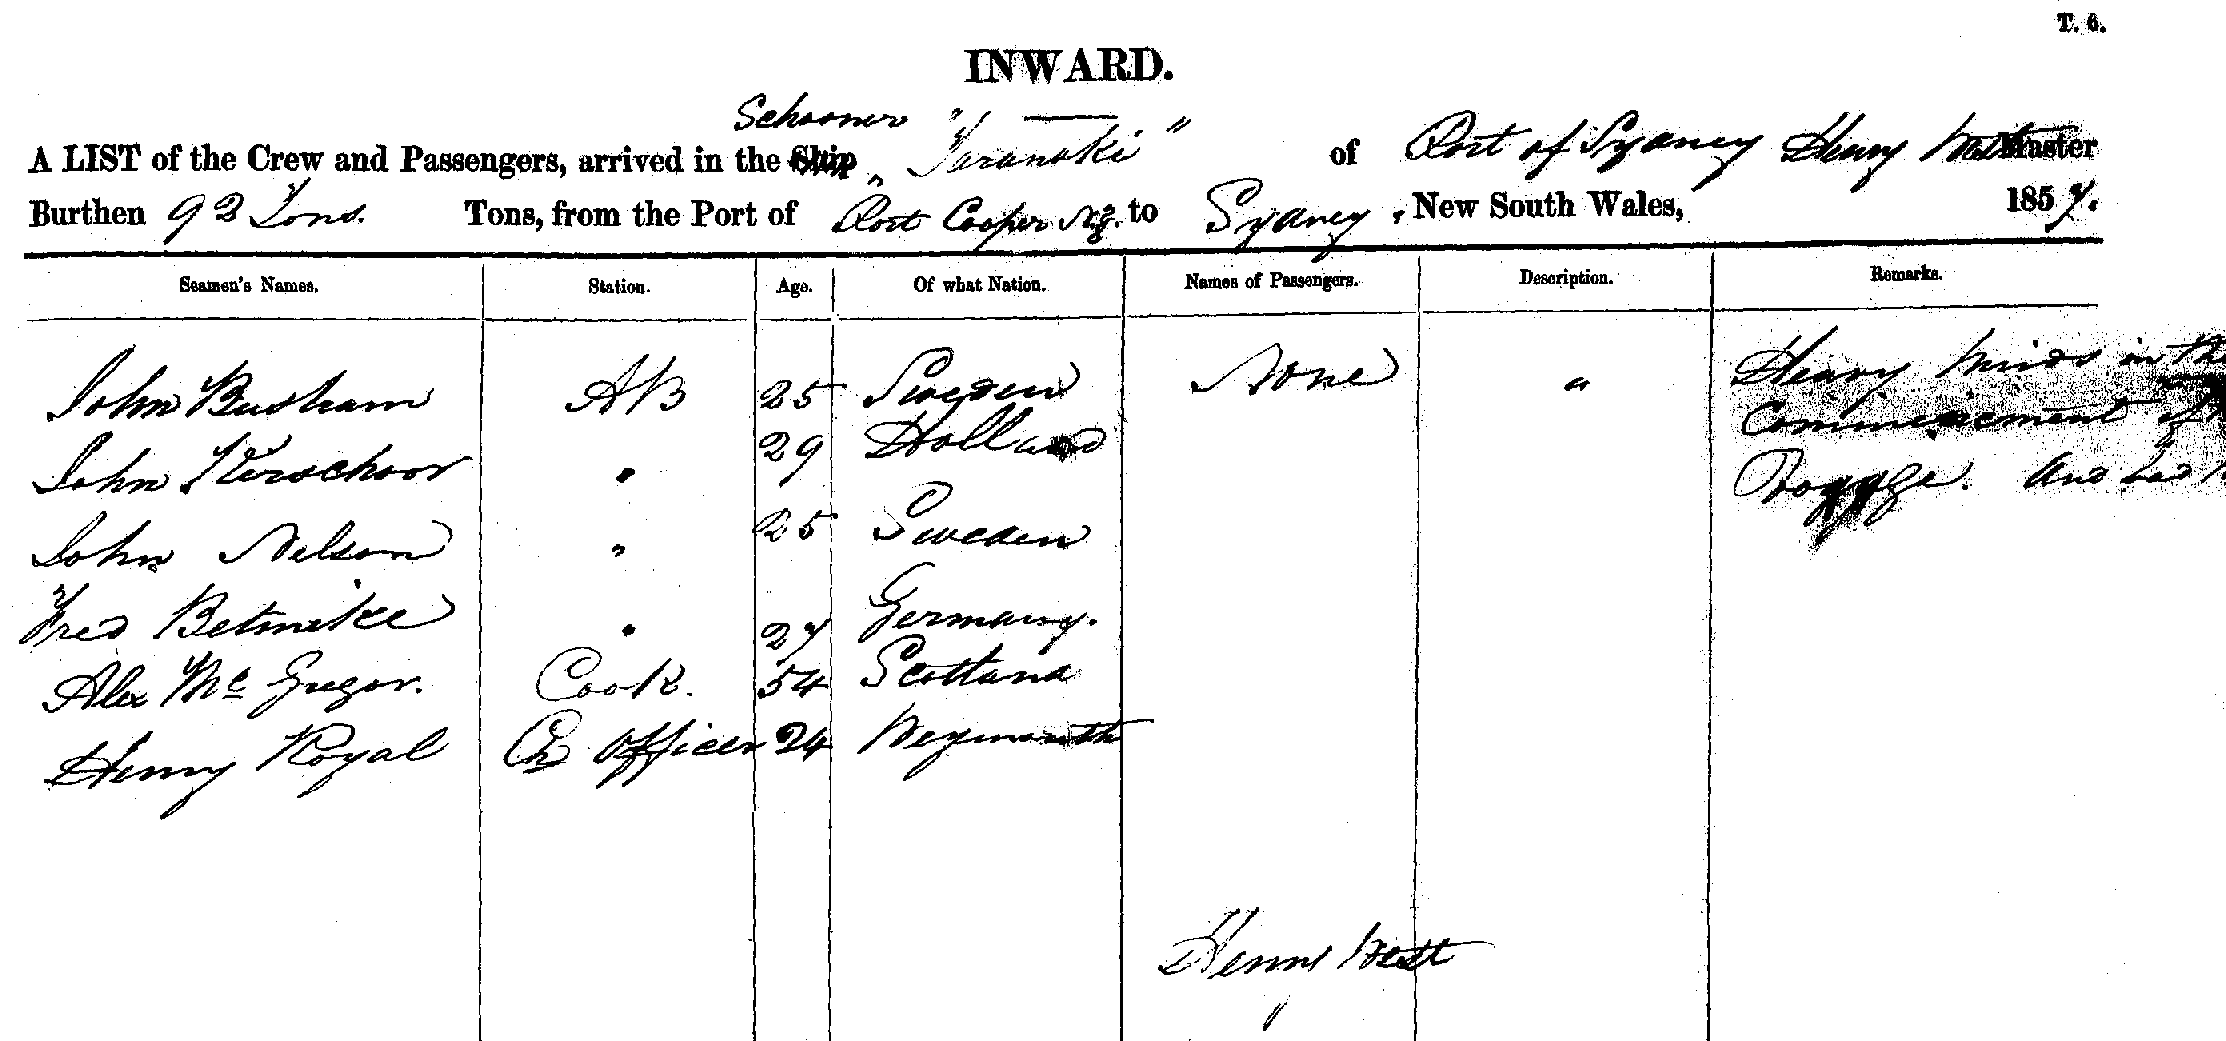 T. 6.
INWARD.
Schooner " "
A LIST of the Crew and Passengers, arrived in the Ship "Taranaki" of Port of Sydney Henry West Master
Burthen 92 Tons. Tons, from the Port of Port Cooper N.Z. to Sydney, New South Wales, 1857.
Seamen's Names. Station. Age. Of what Nation. Names of Passengers. Description. Remarks.
John Busham AB 25 Sweden None " Heavy Winds in the
John Verschoor " 29 Holland Commencement of
John Nelson " 25 Sweden And had
Fred " 27 Germany.
Alex Mc Gregor. Cook. 54 Scotland
Henry Royal Ch Officer 24 Weymouth
Henry West